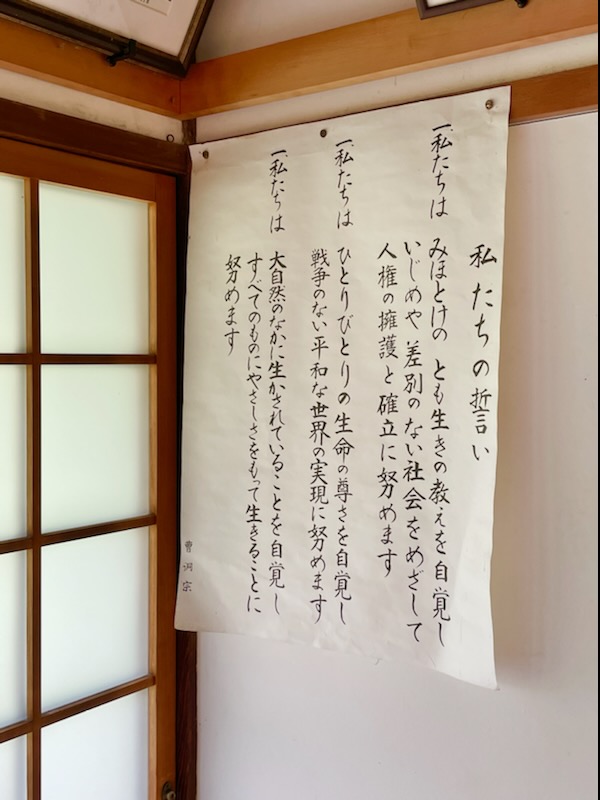 私たちの誓い
一、私たちは みほとけの とも生きの教えを自覚し
いじめや 差別のない社会をめざして
人権の擁護と確立に努めます
一、私たちは ひとりびとりの生命の尊さを自覚し
戦争のない平和な世界の実現に努めます
一、私たちは 大自然のなかに生かされていることを自覚し
すべてのものにやさしさをもって生きることに
努めます
曹洞宗